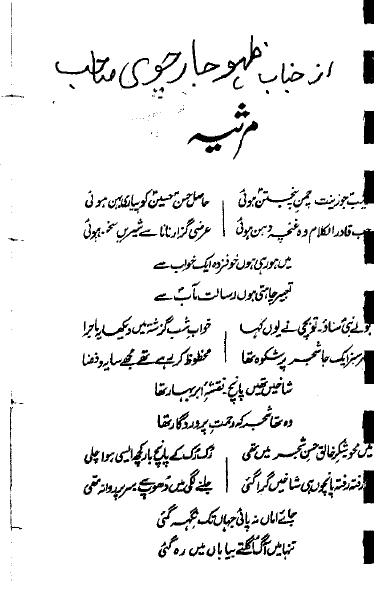 از جناب ظہور جارچوی صاحب
مرثیہ
جو زینت چمن پنجتن ہوئی حاصل حسن حسین کو پیاری بہن ہوئی
جب قادر الکلام وہ غنچہ دہن ہوئی عرضی گزار نانا سے شیریں سخن ہوئی
میں ہو رہی ہوں خوفزدہ ایک خواب سے
تعبیر چاہتی ہوں رسالت مآب سے
بولے نبی سناؤ۔ تو بچی نے یوں کہا خواب شب گزشتہ میں دیکھا یہ ماجرا
سرسبز ایک جا شجر پرشکوہ تھا محظوظ کر رہے تھے مجھے سایہ و فضا
شاخیں تھیں پانچ نقشۂ ابر بہار تھا
وہ تھا شجر کہ رحمت پروردگار تھا
میں محو شکر خالق حسن شجر میں تھی رک رک کے پانچ بار کچھ ایسی ہوا چلی
رفتہ رفتہ پانچوں ہی شاخیں گرا گئی جلنے لگی میں دھوپ سے سر پر ردا نہ تھی
جائے اماں نہ پائی جہاں تک نگہ گئی
تنہا میں آگ اگلتے بیاباں میں رہ گئی